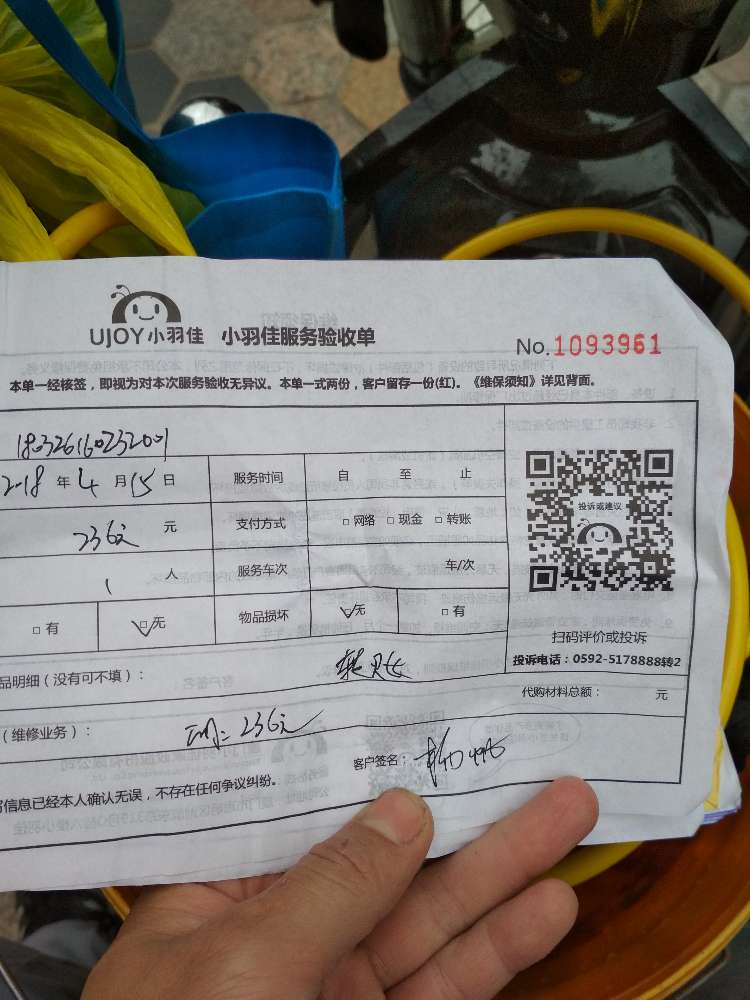 UJOY小羽佳 小羽佳服务验收单
No.1093961
本单一经核签，即视为对本次服务验收无异议。本单一式两份，客户留存一份(红)。《维保须知》详见背面。
2018年4月15日 服务时间 自 至 止
236元 元 支付方式 □网络 □现金 □转账
1 人 服务车次 车/次
□有 □无 物品损坏 □无 □有
投诉或建议
扫码评价或投诉
投诉电话：0592-5178888转2
品明细（没有可不填）：
代购材料总额： 元
（维修业务）： 236元
客户签名：
信息已经本人确认无误，不存在任何争议纠纷。